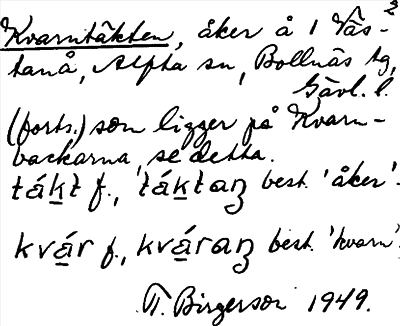 Kvarntäkten, åker å 1² Väs-
tanå, Alfta sn, Bollnäs tg,
Gävl. l.
(forts.) som ligger på Kvarn-
backarna, se detta.
ták̲t f., ták̲taꞑ best. 'åker'.
kvá̲r f., kvá̲raꞑ best. 'kvarn'.
T. Birgerson 1949.